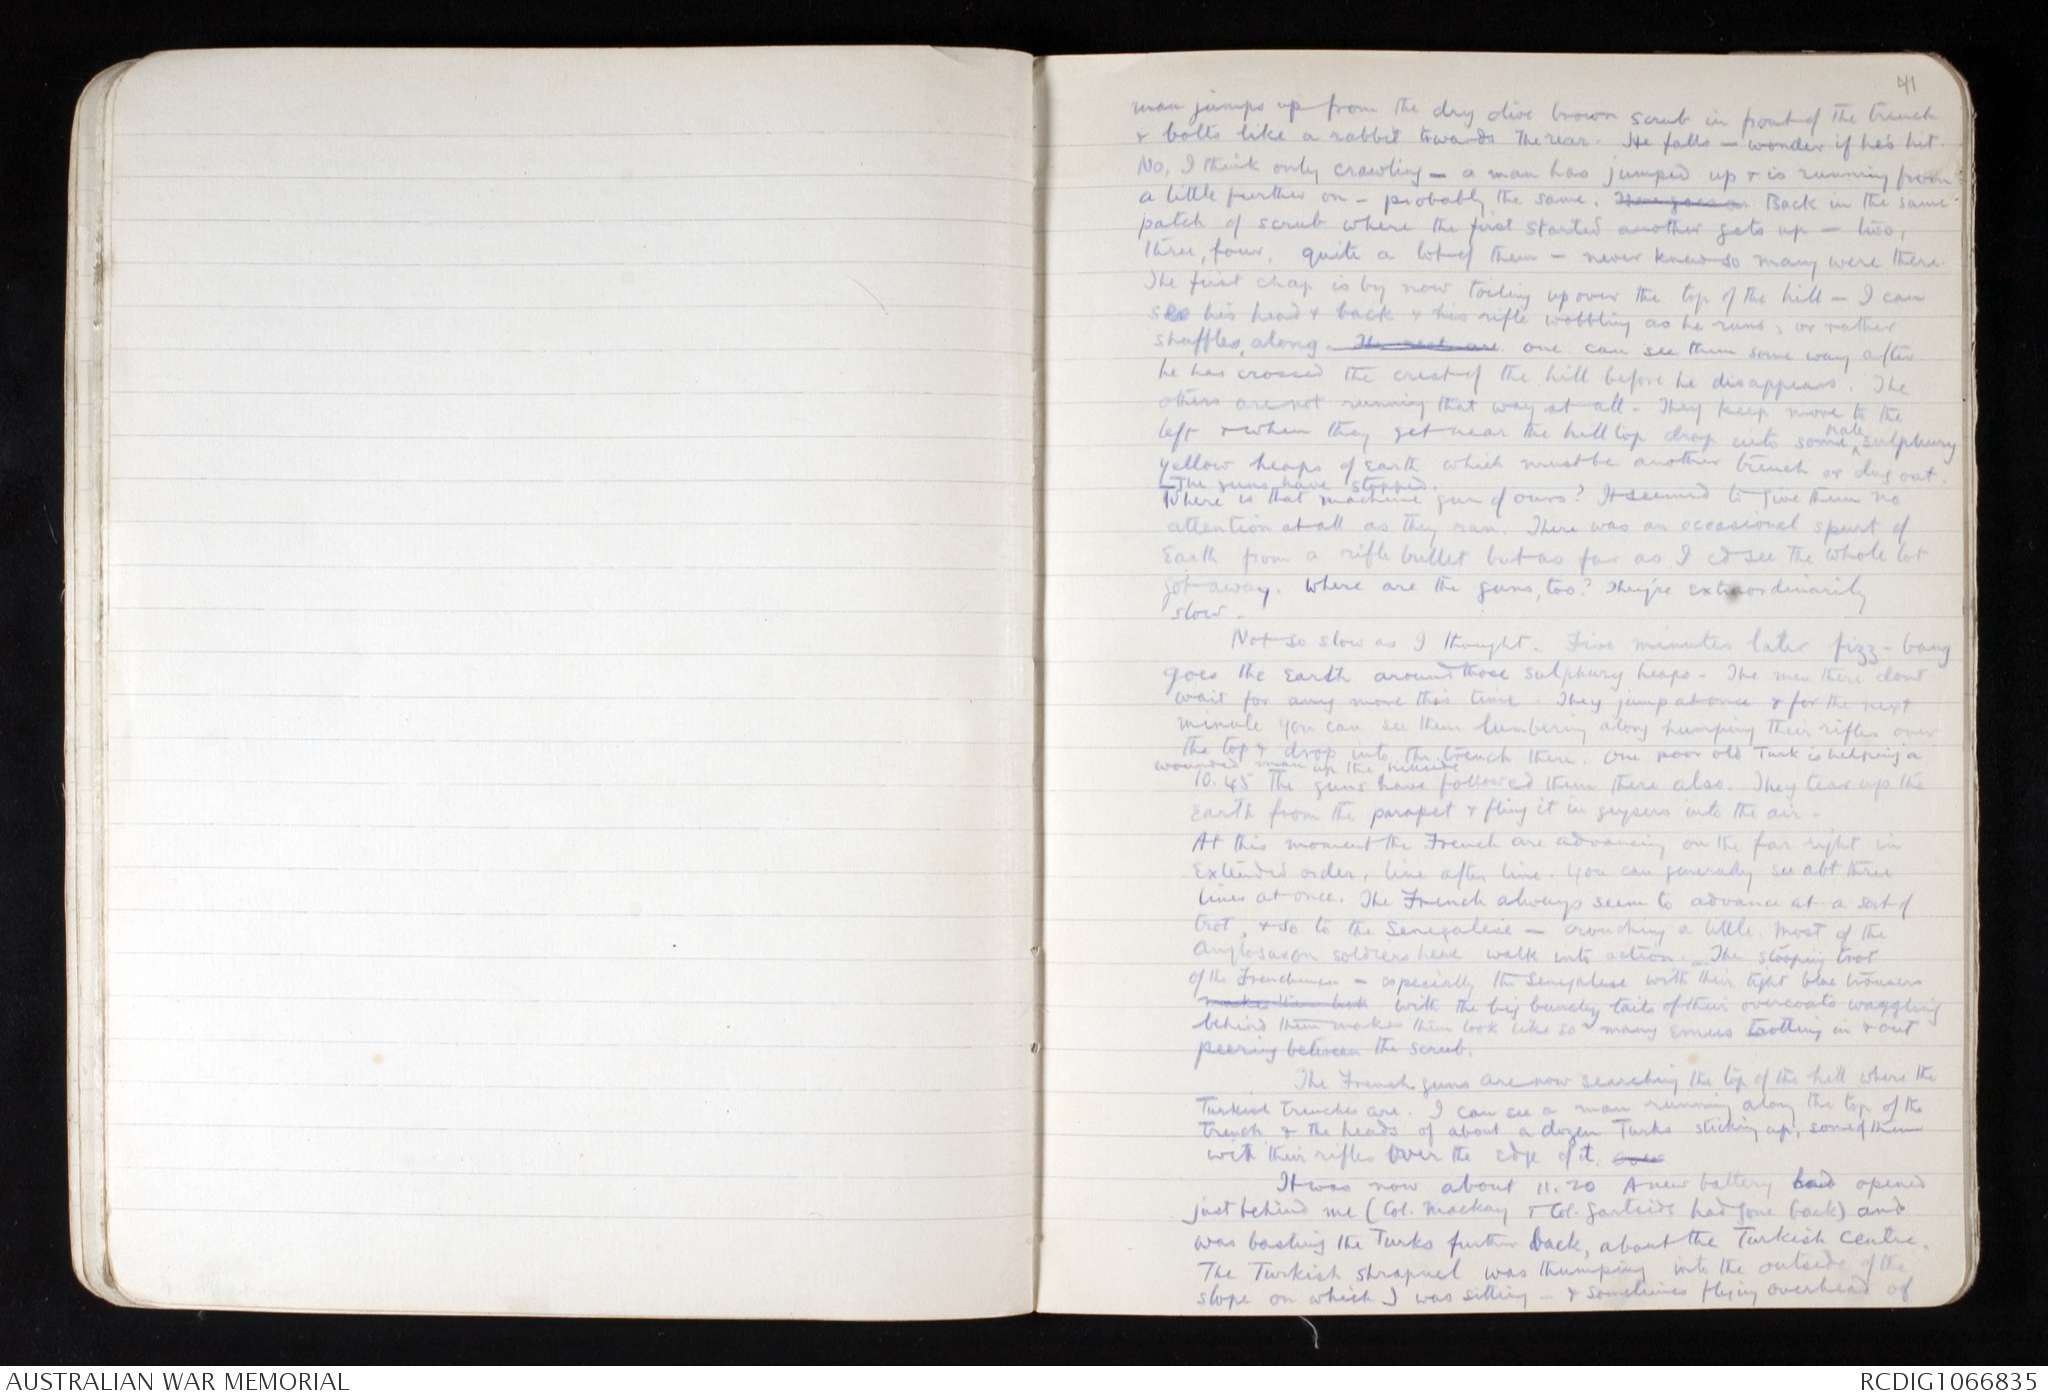 41
man jumps up from the dry olive brown scrub in front of the trench
& bolts like a rabbit towards the rear. He falls – wonder if he's hit.
No, I think only crawling – a man has jumped up & is running from
a little further on – probably the same. Back in the same
patch of scrub where the first started another gets up – two,
three, four, quite a lot of them – never knew so many were there.
The first chap is by now toiling up over the top of the hill – I can
see his head & back & his rifle wobbling as he runs, or rather
shuffles, along. The rest are one can see them some way after
he has crossed the crest of the hill before he disappears. The
others are not running that way at all. They keep more to the
left & when they get near the hill top drop into some pale sulphury
yellow heaps of earth which must be another trench or dug out.
The guns have stopped.
Where is that machine gun of ours? It seemed to give them no
attention at all as they ran. There was an occasional spurt of
Earth from a rifle bullet but as far as I cd see the whole lot
got away. Where are the guns, too? They're extraordinarily
slow.
Not so slow as I thought. Five minutes later fizz-bang
goes the Earth around those sulphury heaps. The men there dont
wait for any more this time. They jump at once & for the next
minute you can see them lumbering along humping their rifles over
the top & drop into the trench there. One poor old Turk is helping a
wounded man up the hillside
10.45 The guns have followed them there also. They tear up the
Earth from the parapet & fling it in geysers into the air.
At this moment the French are advancing on the far right in
Extended order, line after line. You can generally see abt three
lines at once. The French always seem to advance at a sort of
trot, & so to the Senegalese – crouching a little. Most of the
Anglosaxon soldiers here walk into action. The stooping trot
of the Frenchmen – especially the Senegalese with their tight blue trousers
makes them look with the big bundly tails of their overcoats waggling
behind them makes them look like so many Emus trotting in & out
peering between the scrub.
The French guns are now searching the top of the hill where the
Turkish trenches are. I can see a man running along the top of the
trench & the heads of about a dozen Turks sticking up, some of them
with their rifles over the edge of it. over
It was now about 11.20 A new battery had opened
just behind me (Col. Mackay & Col. Garteide had gone back) and
was bashing the Turks further back, about the Turkish centre.
The Turkish shrapnel was thumping into the outside of the
slope on which I was sitting – & sometimes flying overhead of
AUSTRALIAN WAR MEMORIAL
RCDIG1066835